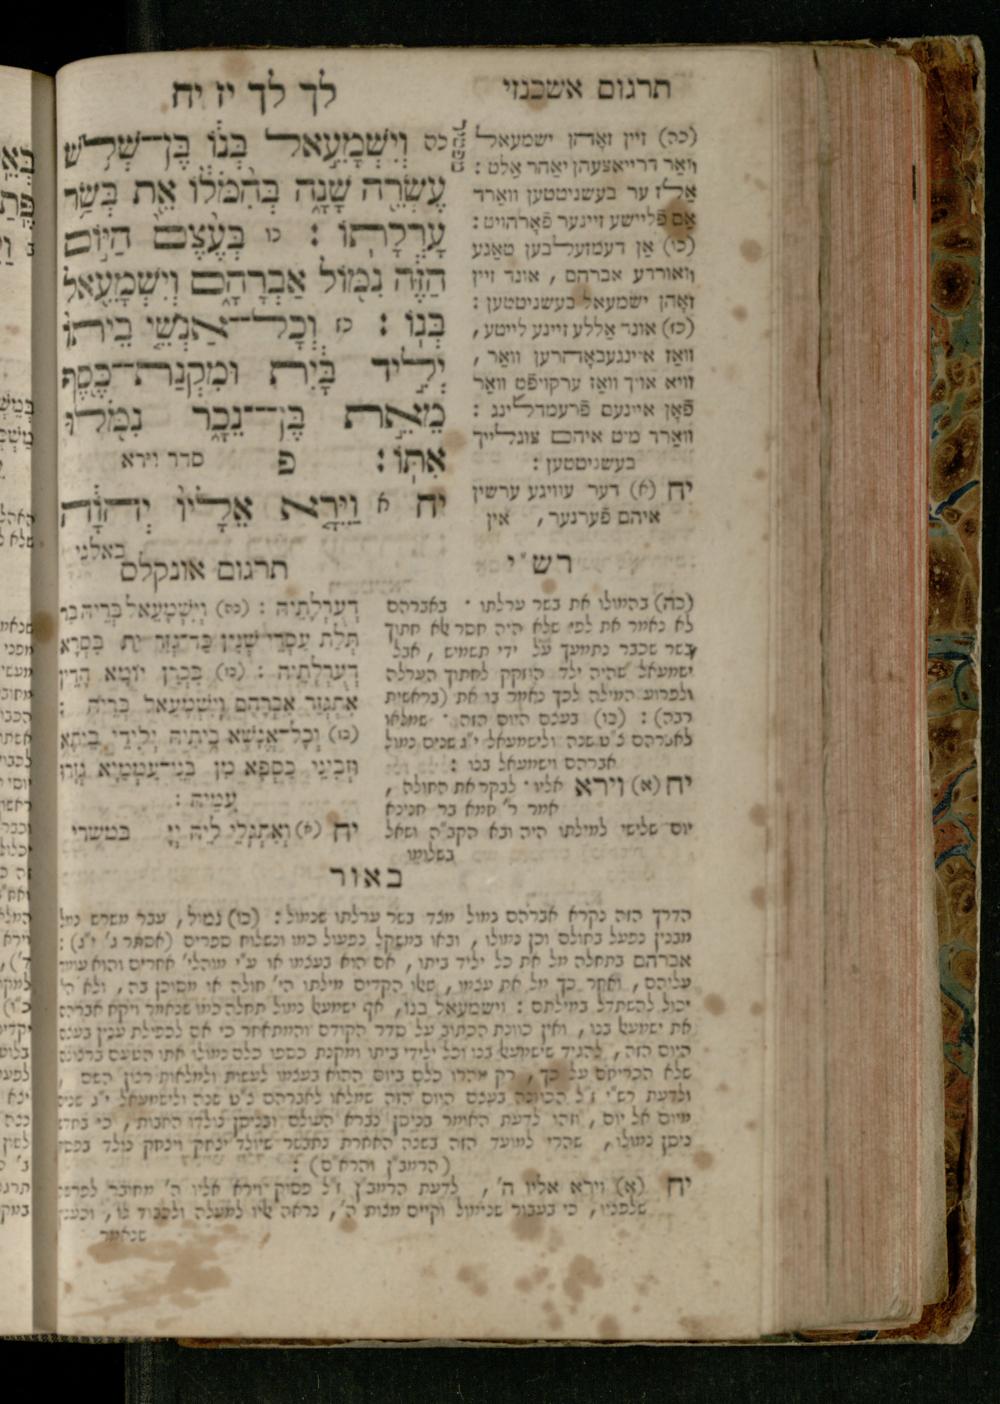 תרגום אשכנזי
לך לך יז יח
כה וְיִשְׁמָעֵאל בְּנוֹ בֶּן־שְׁלֹשׁ
עֶשְׂרֵה שָׁנָה בְּהִמֹּלוֹ אֵת בְּשַׂר
עָרְלָתוֹ : כו בְּעֶצֶם הַיּוֹם
הַזֶּה נִמּוֹל אַבְרָהָם וְיִשְׁמָעֵאל
בְּנוֹ : כז וְכָל־אַנְשֵׁי בֵיתוֹ
יְלִיד בָּיִת וּמִקְנַת־כֶּסֶף
מֵאֵת בֶּן־נֵכָר נִמֹּלוּ
אִתּוֹ : פ סדר וירא
יח א וַיֵּרָא אֵלָיו יְהוָֹה
באלני
מפטיר
(כה) זיין זאָהן ישמעאל
וואַר דרייאצעהן יאהר אַלט :
אַלז ער בעשניטטען וואַרד
אַם פֿליישע זיינער פֿאָרהויט :
(כו) אן דעמזעלבען טאַגע
וואורדע אברהם , אונד זיין
זאָהן ישמעאל בעשניטטען :
(כז) אונד אַללע זיינע לייטע ,
וואַז איינגעבאָהרען וואַר ,
זוויא אויך וואַז ערקויפֿט וואַר
פֿאָן איינעם פֿרעמדלינג :
וואַרד מיט איהם צוגלייך
בעשניטטען :
יח (א) דער עוויגע ערשין
איהם פֿערנער, אין
רש"י
(כה) בהמולו את בשר ערלתו ⋅ באברהם
לא נאמר את לפי שלא היה חסר אלא חתוך
בשר שכבר נתמעך על ידי תשמיש , אבל
ישמעאל שהיה ילד הוזקק לחתוך הערלה
ולפרוע המילה לכך נאמר בו את (בראשית
רבה) : (כו) בעצם היום הזה ⋅ שמלאו
לאברהם צ"ט שנה ולישמעאל י"ג שנים נמול
אברהם וישמעאל בנו :
יח (א) וירא אליו ⋅ לבקר את החולה ,
אמר ר' חמא בר חנינא
יום שלישי למילתו היה ובא הקב"ה ושאל
בשלומו
תרגום אונקלס
דְעָרְלָתֵיהּ : (כה) וְיִשְׁמָעֵאל בְּרֵיהּ בַּר
תְּלַת עַסְרֵי שְׁנִין כַּד־גְּזַר יָת בִּסְרָא
דְעָרְלָתֵיהּ : (כו) בִּכְרַן יוֹמָא הָדֵין
אִתְגְּזַר אַבְרָהָם וְיִשְׁמָעֵאל בְּרֵיהּ :
(כז) וְכָל־אֱנָשֵׁי בֵיתֵיהּ יְלִידֵי בֵיתָא
וּזְבִינֵי כַסְפָּא מִן בְּנֵי־עַמְמַיָּא גְּזַרוּ
עִמֵּיהּ :
יח (א) וְאִתְגְּלִי לֵיהּ יְיָ במשרי
באור
הדרך הזה נקרא אברהם נמול מצד בשר ערלתו שנמול : (כו) נמול, עבר משרש נמל
מבנין נפעל בחולם וכן נמולו , ובאו במשקל נפעול כמו ונשלוח ספרים (אסתר ג' י"ג) :
אברהם בתחלה מל את כל יליד ביתו , אם הוא בעצמו או ע"י מוהלי' אחרים והוא עומד
עליהם , ואחר כך מל את עצמו , שאלו הקדים מילתו הי' חולה או מסוכן בה , ולא הי'
יכול להשתדל במילתם : וישמעאל בנו, אף ישמעאל נמול תחלה כמו שנאמר ויקח אברהם
את ישמעאל בנו , ואין כוונת הכתוב על סדר הקודם והמתאחר כי אם לכפילת ענין בעצם
היום הזה , להגיד שישמעאל בנו וכל ילידי ביתו ומקנת כספו כלם נמולו אתו הטעם ברצונם
שלא הכריחם על כך , רק מהרו כלם ביום ההוא בעצמו לעשות ולמלאות רצון השם ,
ולדעת רש"י ז"ל הכוונה בעצם היום הזה שמלאו לאברהם צ"ט שנה ולישמעאל י"ג שנים
מיום אל יום , וזהו לדעת האומר בניסן נברא העולם ובניסן נולדו האבות , כי בחדש
ניסן נמולו , שהרי למועד הזה בשנה האחרת נתבשר שיולד יצחק ויצחק נולד בפסח
(הרמב"ן והרא"ם) :
יח (א) וירא אליו ה' , לדעת הרמב"ן ז"ל פסוק וירא אליו ה' מחובר לפרשה
שלפניו , כי בעבור שנימול וקיים מצות ה' , נראה אליו למעלה ולכבוד לו , וכענין
שנאמר